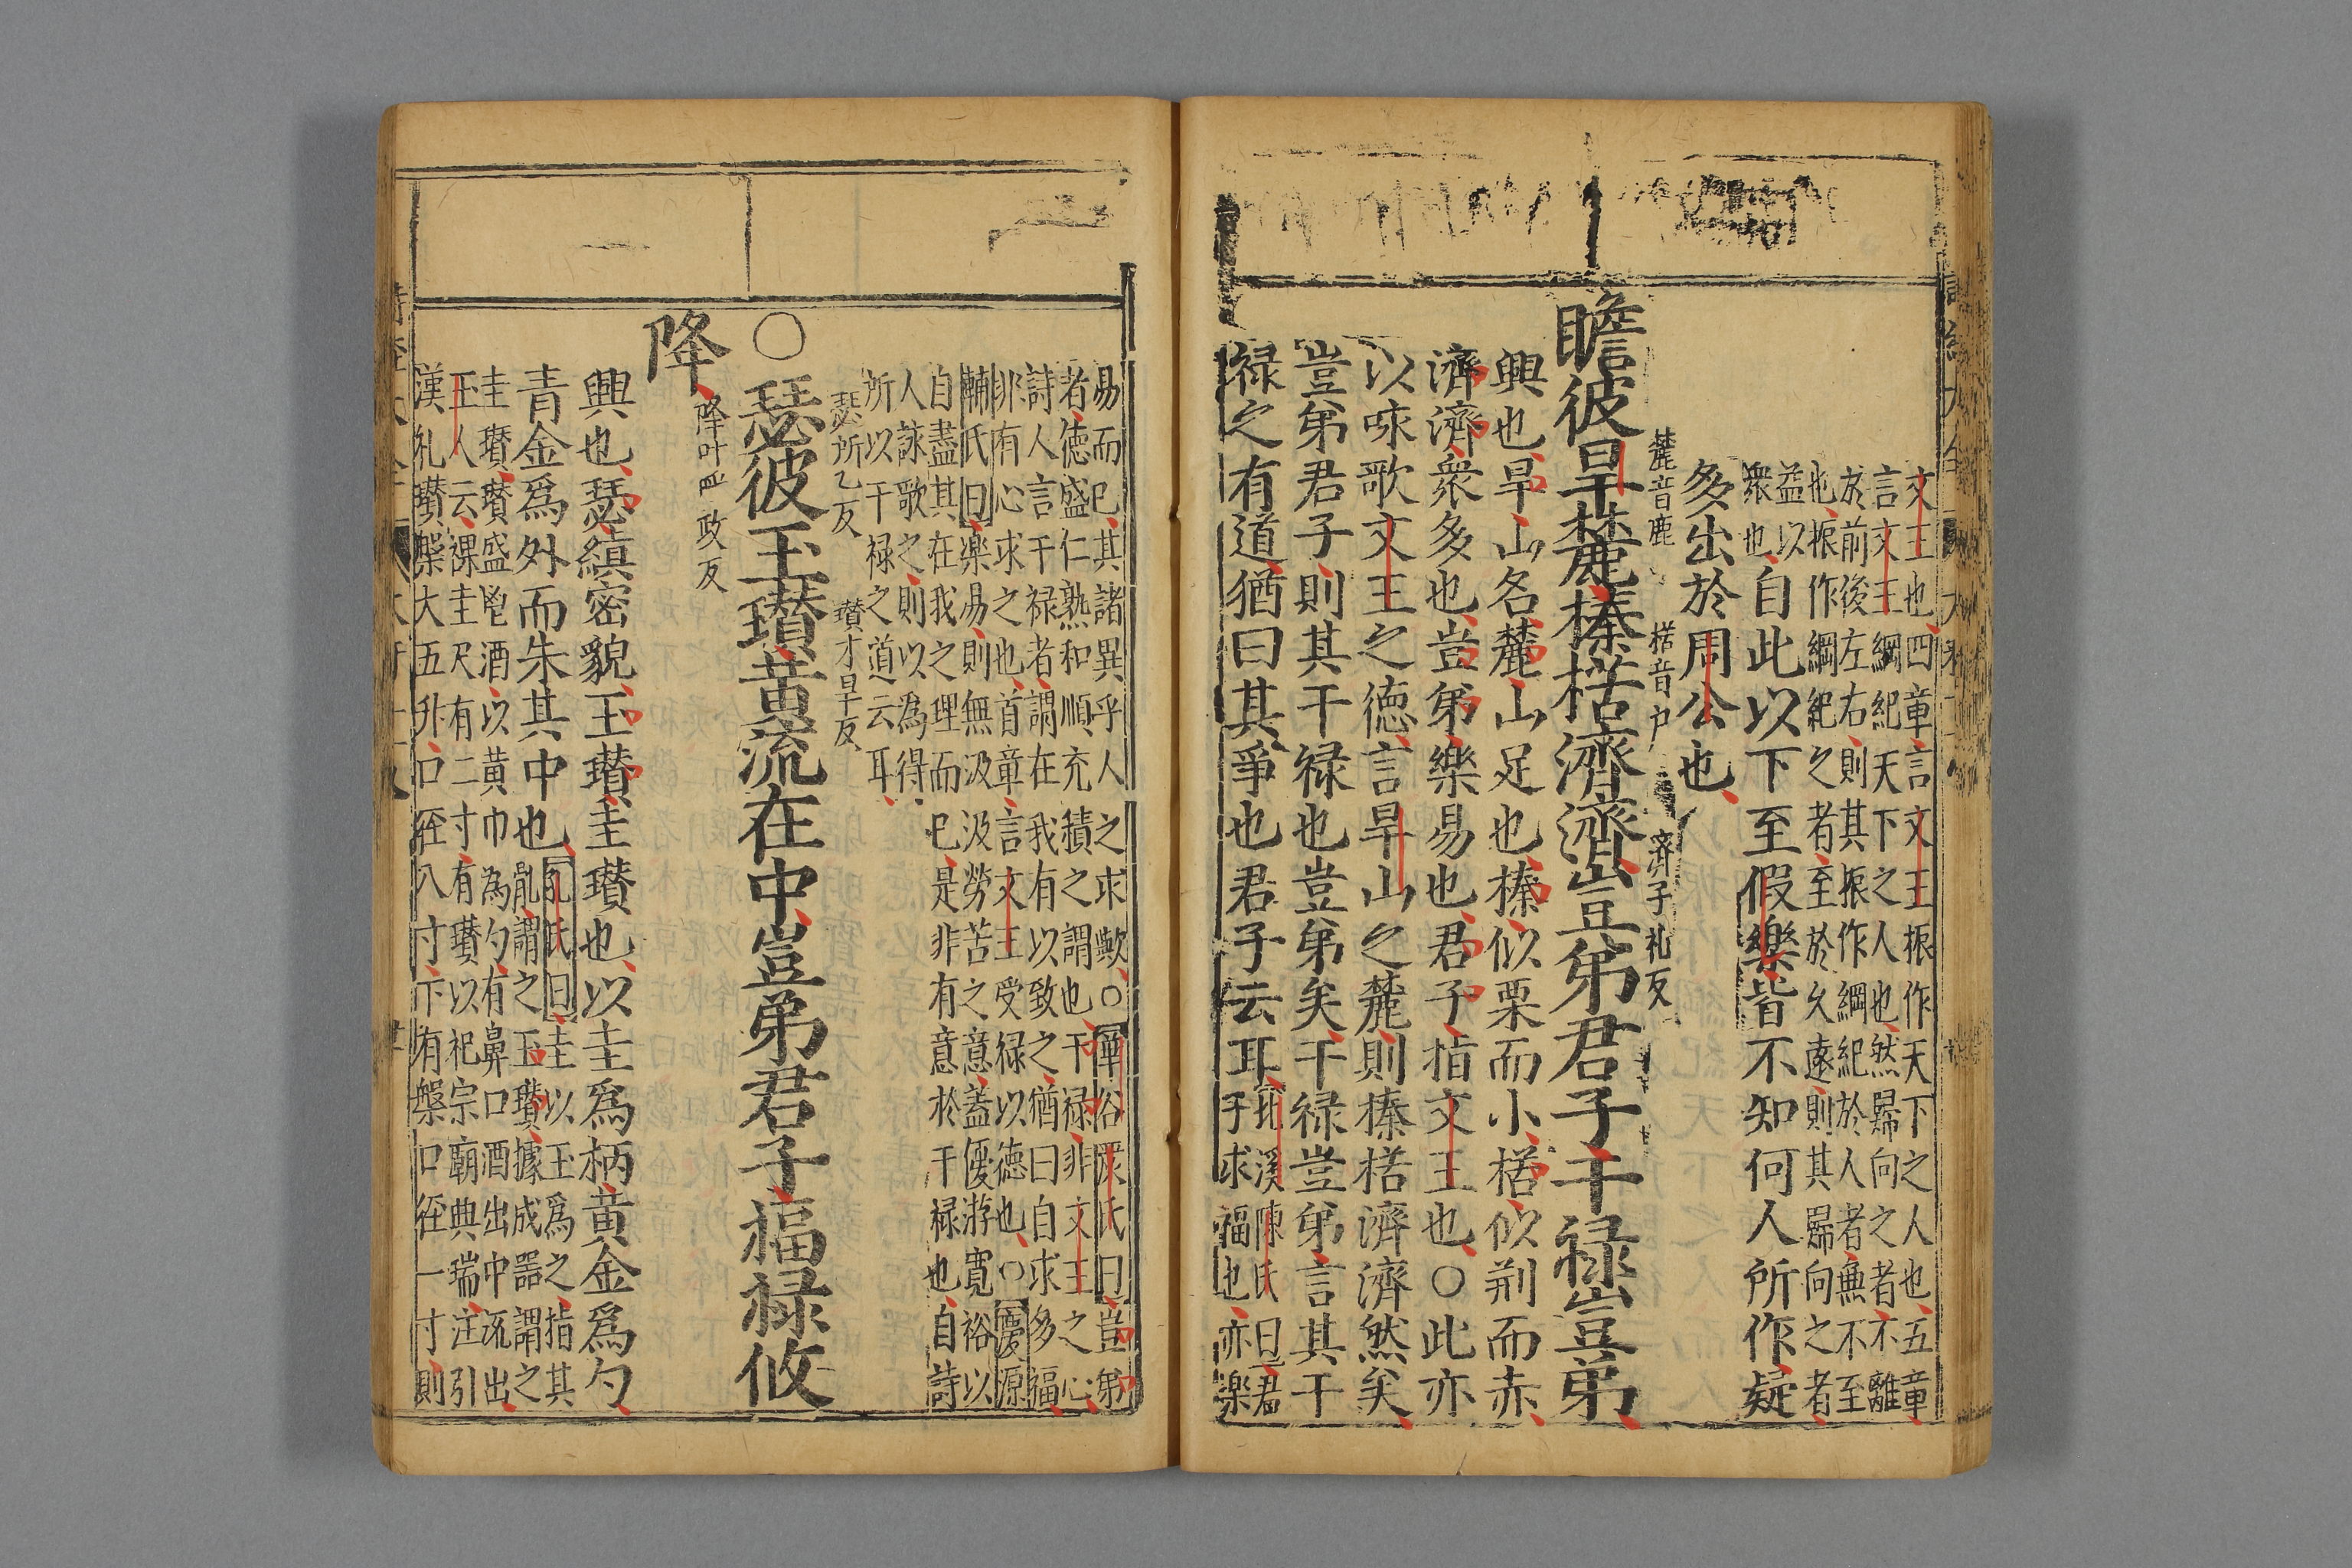 文王也四章言文王振作天下之人也五章
言文王綱紀天下之人也然歸向之者不離
於前後左右則其振作綱紀於人者無不至
也振作綱紀之者至於久遠則其歸向之者
益以
衆也自此以下至假樂皆不知何人所作疑
多出於周公也
麓音鹿 楛音戶 濟子礼反
瞻彼旱麓榛楛濟濟豈弟君子干禄豈弟
興也旱山名麓山足也榛似栗而小楛似荊而赤
濟濟衆多也豈弟樂易也君子指文王也○此亦
以咏歌文王之德言旱山之麓則榛楛濟濟然矣
豈弟君子則其干禄也豈弟矣干禄豈弟言其干
禄之有道猶曰其爭也君子云耳
北溪陳氏曰君
子求福也亦樂
易而已其諸異乎人之求歟○華谷嚴氏曰豈弟
者德盛仁熟和順充積之謂也干禄非文王之心
詩人言干禄者謂在我有以致之猶曰自求多福
非有心求之也首章言文王受禄以德也○慶源
輔氏曰樂易則無汲汲勞苦之意蓋優游寬裕以
自盡其在我之理而已是非有意於干禄也自詩
人詠歌之則以為得
所以干禄之道云耳
瑟所乙反 瓚才旱反
○瑟彼玉瓚黃流在中豈弟君子福禄攸
降
降叶呼攻反
興也瑟縝密貌玉瓚圭瓚也以圭爲柄黃金爲勺
青金爲外而朱其中也
孔氏曰圭以玉爲之指其
體謂之玉瓚據成器謂之
圭瓚瓚盛鬯酒以黃巾為勺有鼻口酒出中流出
玉人云祼圭尺有二寸有瓚以祀宗廟典瑞注引
漢礼瓚槃大五升口径八寸下有槃口径一寸則